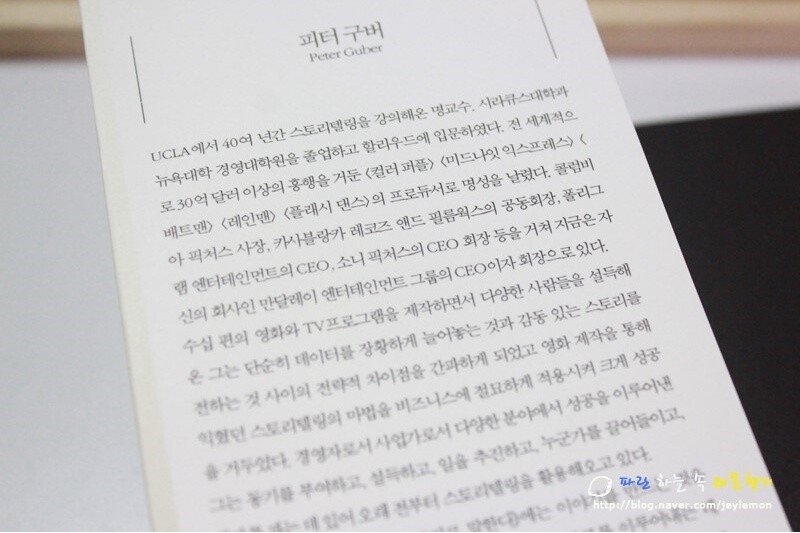 피터 구버
Peter Guber
UCLA에서 40여 년간 스토리텔링을 강의해온 명교수. 시라큐스대학과
뉴욕대학 경영대학원을 졸업하고 할리우드에 입문하였다. 전 세계적으
로 30억 달러 이상의 흥행을 거둔 〈컬러 퍼플〉 〈미드나잇 익스프레스〉 〈
배트맨〉 〈레인맨〉 〈플래시 댄스〉의 프로듀서로 명성을 날렸다. 콜럼비
아 픽처스 사장, 카사블랑카 레코즈 앤드 필름웍스의 공동회장, 폴리그
램 엔터테인먼트의 CEO, 소니 픽처스의 CEO 회장 등을 거쳐 지금은 자
신의 회사인 만달레이 엔터테인먼트 그룹의 CEO이자 회장으로 있다.
수십 편의 영화와 TV프로그램을 제작하면서 다양한 사람들을 설득해
온 그는 단순히 데이터를 장황하게 늘어놓는 것과 감동 있는 스토리를
전하는 것 사이의 전략적 차이점을 간파하게 되었고 영화 제작을 통해
익혔던 스토리텔링의 마법을 비즈니스에 절묘하게 적용시켜 크게 성공
을 거두었다. 경영자로서 사업가로서 다양한 분야에서 성공을 이루어낸
그는 동기를 부여하고, 설득하고, 일을 추진하고, 누군가를 끌어들이고,
데 있어 오래 전부터 스토리텔링을 활용해오고 있다.
파란 하늘 속
http://blog.naver.com/jeylemon